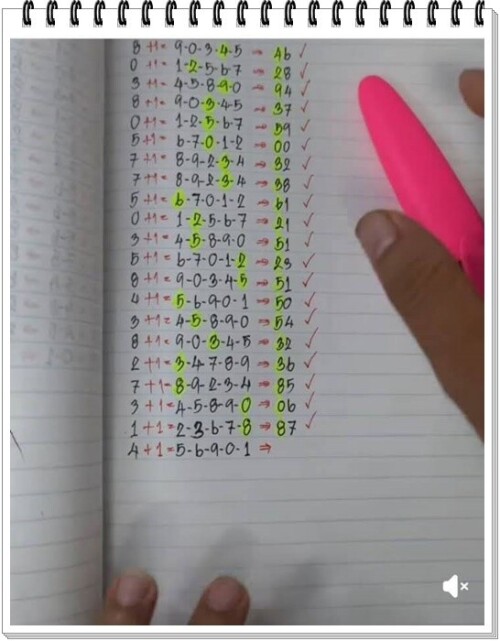 8 +1= 9-0-3-4-5 ⇒ 46 ✓
0 +1= 1-2-5-6-7 ⇒ 28 ✓
3 +1= 4-5-8-9-0 ⇒ 94 ✓
8 +1= 9-0-3-4-5 ⇒ 37 ✓
0 +1= 1-2-5-6-7 ⇒ 59 ✓
5 +1= 6-7-0-1-2 ⇒ 00 ✓
7 +1= 8-9-2-3-4 ⇒ 32 ✓
7 +1= 8-9-2-3-4 ⇒ 38 ✓
5 +1= 6-7-0-1-2 ⇒ 61 ✓
0 +1= 1-2-5-6-7 ⇒ 21 ✓
3 +1= 4-5-8-9-0 ⇒ 51 ✓
5 +1= 6-7-0-1-2 ⇒ 23 ✓
8 +1= 9-0-3-4-5 ⇒ 51 ✓
4 +1= 5-6-9-0-1 ⇒ 50 ✓
3 +1= 4-5-8-9-0 ⇒ 54 ✓
8 +1= 9-0-3-4-5 ⇒ 32 ✓
2 +1= 3-4-7-8-9 ⇒ 36 ✓
7 +1= 8-9-2-3-4 ⇒ 85 ✓
3 +1= 4-5-8-9-0 ⇒ 06 ✓
1 +1= 2-3-6-7-8 ⇒ 87 ✓
4 +1= 5-6-9-0-1 ⇒